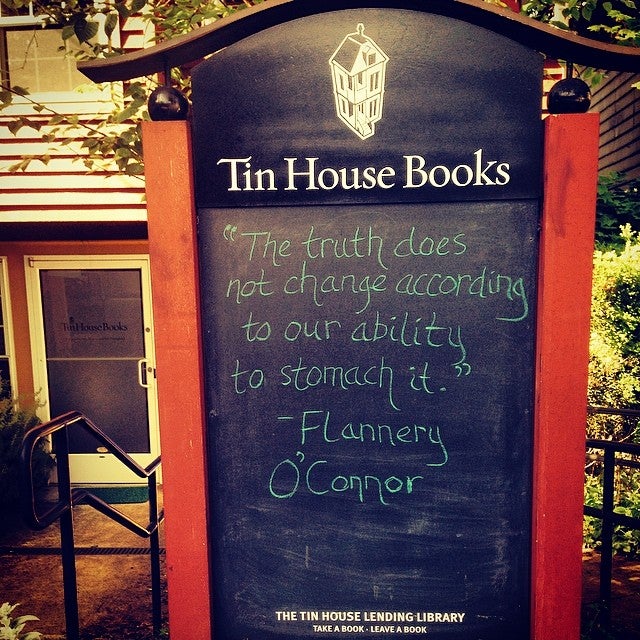 Tin House Books
"The truth does
not change according
to our ability
to stomach it."
- Flannery
O'Connor
Tin House Books
THE TIN HOUSE LENDING LIBRARY
TAKE A BOOK · LEAVE A BOOK